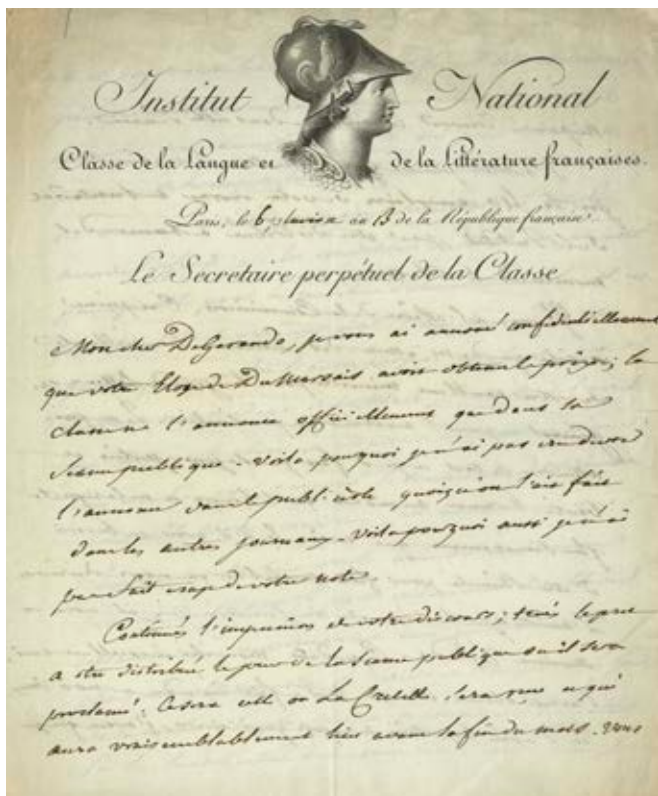 Institut National
Classe de la Langue et de la Littérature françaises.
Paris, le 6 pluviose an 13 de la République française
Le Secretaire perpétuel de la Classe
Mon cher Degerando, je vous ai annoncé confidentiellement
que votre Eloge de Dumarsais avoit obtenu le prix; la
classe ne l'annonce officiellement que dans sa
séance publique. Voila pourquoi je n'ai pas
l'annonce dans le publiciste quoiqu'on l'ait fait
dans les autres journaux. Voila pourquoi aussi je n'ai
pas fait usage de votre note.
Continués l'impression de votre discours; tenés le pret
a etre distribué le jour de la seance publique ou il sera
proclamé. Ce sera celle où La Cretelle sera reçu ce qui
aura vraisemblablement lieu avant la fin du mois. Vous